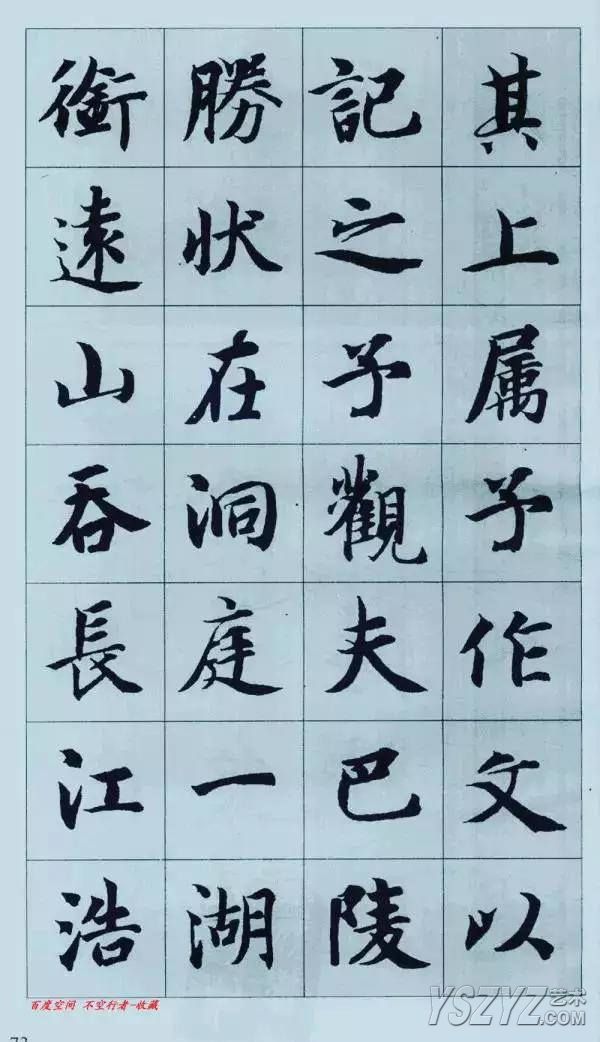 其上属予作文以
記之予觀夫巴陵
勝状在洞庭一湖
銜遠山吞長江浩
百度空间 不空行者-收藏
YSZYZ艺术
.COM